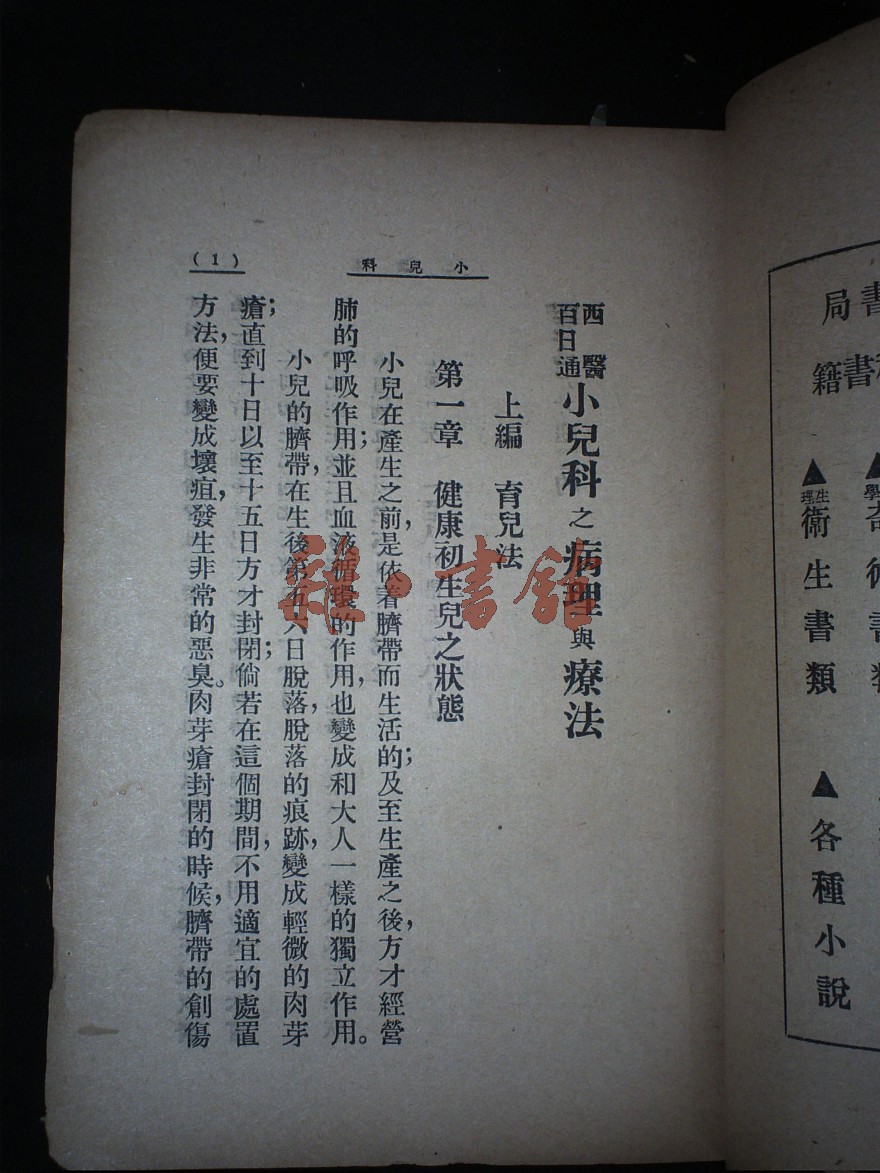 書局
書籍
▲生理衛生書類
▲各種小說
小兒科
(1)
西醫百日通小兒科之病理與療法
上編　育兒法
第一章　健康初生兒之狀態
小兒在產生之前,是依着臍帶而生活的;及至生產之後,方才經營
肺的呼吸作用;並且血液循環的作用,也變成和大人一樣的獨立作用。
小兒的臍帶,在生後第五六日脫落,脫落的痕跡,變成輕微的肉芽
瘡;直到十日以至十五日方才封閉;倘若在這個期間,不用適宜的處置
方法,便要變成壞疽,發生非常的惡臭。肉芽瘡封閉的時候,臍帶的創傷
雜·書館